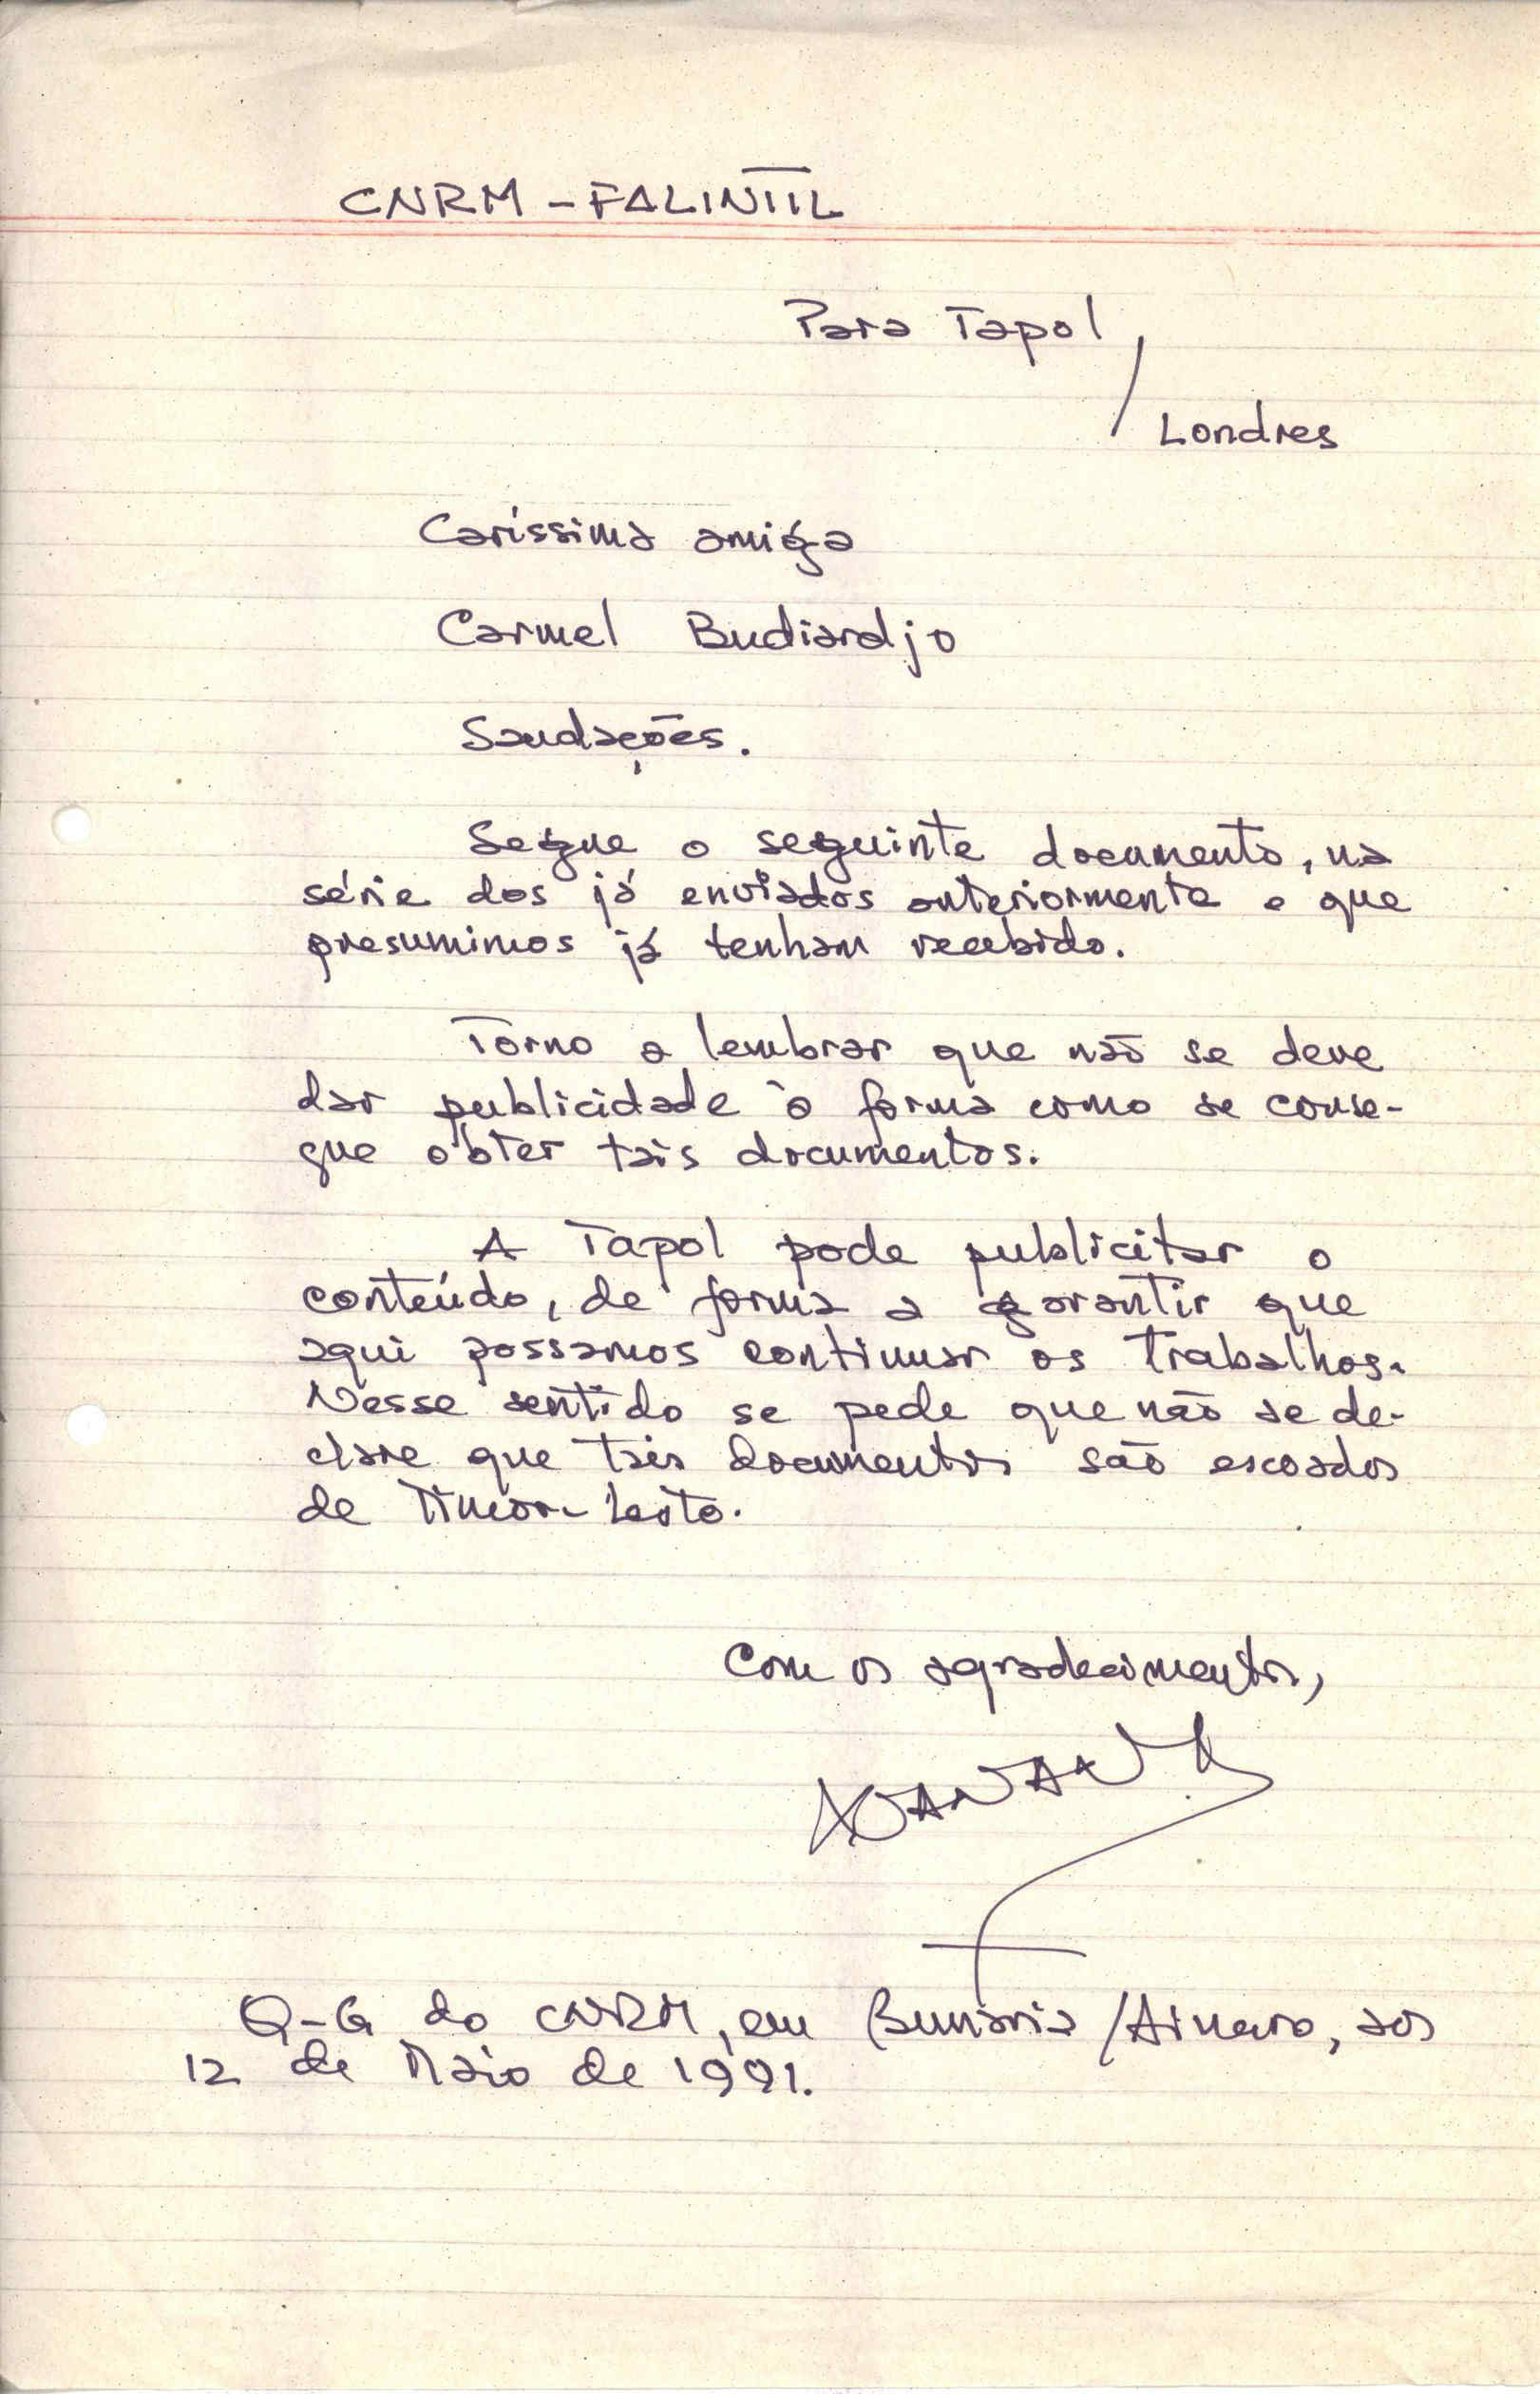 CNRM - FALINTIL
Para Tapol,
/ Londres
Caríssima amiga
Carmel Budiardjo
Saudações.
Segue o seguinte documento, na
série dos já enviados anteriormente e que
presumimos já tenham recebido.
Torno a lembrar que não se deve
dar publicidade à forma como se conse-
gue obter tais documentos.
A Tapol pode publicitar o
conteúdo, de forma a garantir que
aqui possamos continuar os trabalhos.
Nesse sentido se pede que não se de-
clare que tais documentos são escoados
de Timor-Leste.
Com os agradecimentos,
XANANA
Q-G do CNRM, em Bunária/Ainaro, aos
12 de Maio de 1991.